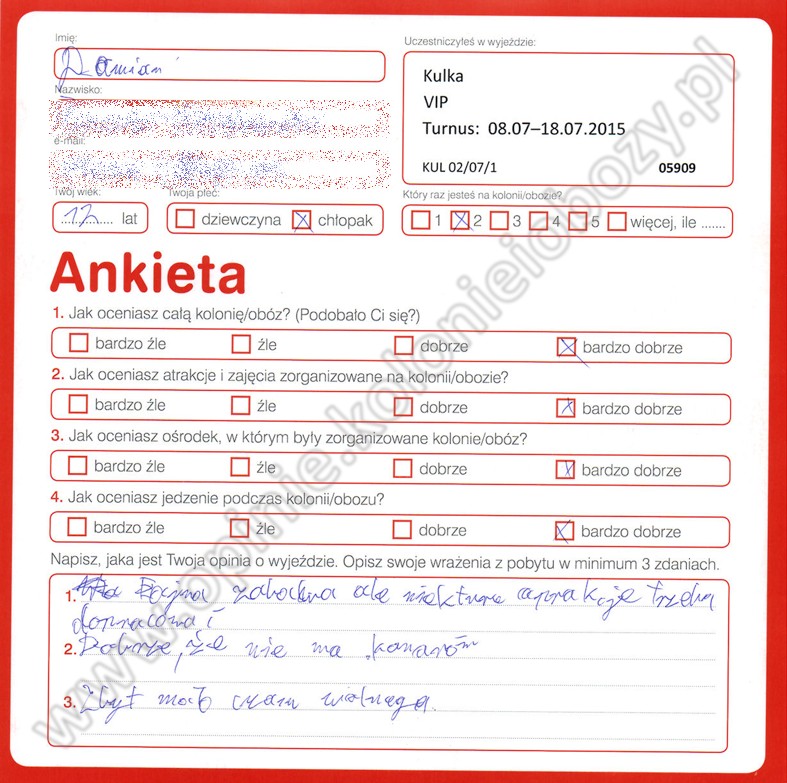 Imię:
Damian
Uczestniczyłeś w wyjeździe:
Kulka
VIP
Turnus: 08.07–18.07.2015
KUL 02/07/1 05909
Nazwisko:
e-mail:
Twój wiek: Twoja płeć: Który raz jesteś na kolonii/obozie?
12 lat dziewczyna chłopak 1 2 3 4 5 więcej, ile .......
Ankieta
1. Jak oceniasz całą kolonię/obóz? (Podobało Ci się?)
bardzo źle źle dobrze bardzo dobrze
2. Jak oceniasz atrakcje i zajęcia zorganizowane na kolonii/obozie?
bardzo źle źle dobrze bardzo dobrze
3. Jak oceniasz ośrodek, w którym były zorganizowane kolonie/obóz?
bardzo źle źle dobrze bardzo dobrze
4. Jak oceniasz jedzenie podczas kolonii/obozu?
bardzo źle źle dobrze bardzo dobrze
Napisz, jaka jest Twoja opinia o wyjeździe. Opisz swoje wrażenia z pobytu w minimum 3 zdaniach.
1. Fajna ale trzeba
2. Dobrze, że nie ma
3. Zbyt czasu
www.opinie.kolonieiobozy.pl